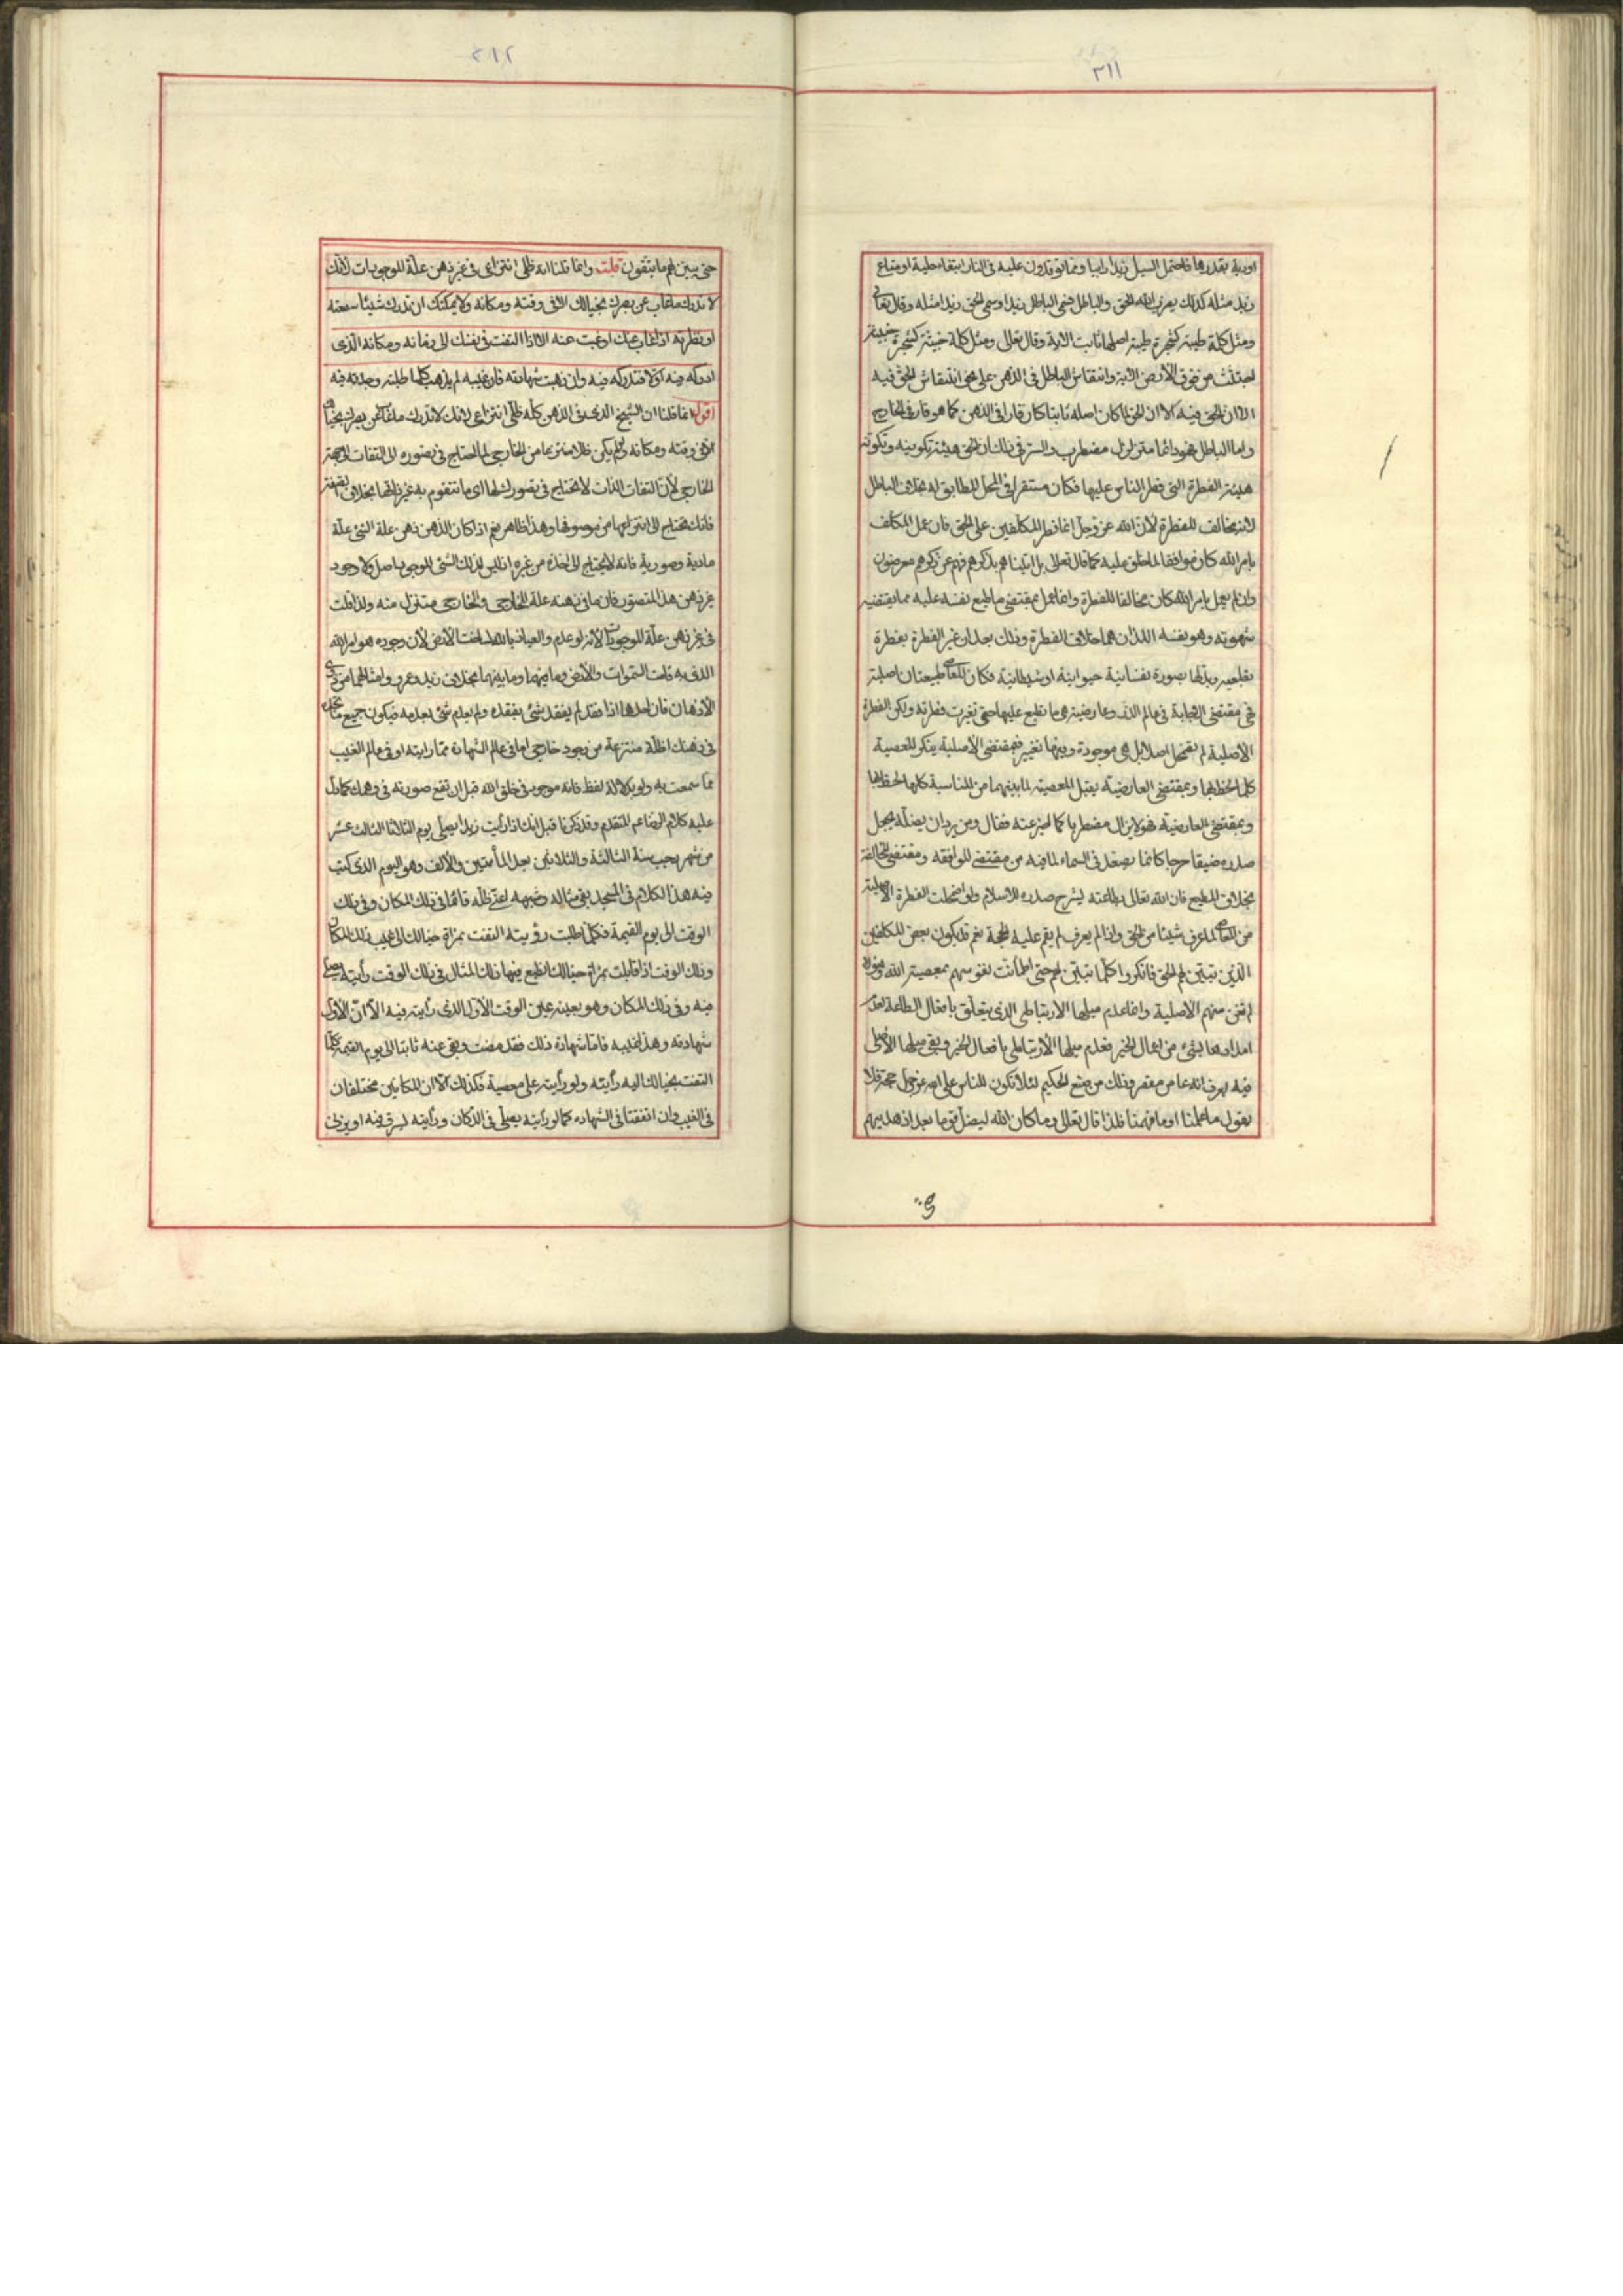 ٣١١
اودية بقدرها فاحتمل السيل زبدا رابيا ومما توقدون عليه فى النار ابتغاء حلية او متاع
زبد مثله كذلك يضرب الله الحق والباطل فسمى الباطل زبدا وسمى الحق زبدا مثله وقال تعالى
ومثل كلمة طيبة كشجرة طيبة اصلها ثابت الاية وقال تعالى ومثل كلمة خبيثة كشجرة خبيثة
اجتثت من فوق الأرض الاية وانتقاش الباطل فى الذهن على نحو انتقاش الحق فيه
الا ان الحق لما كان اصله ثابتا كان قارا فى الذهن كما هو قار فى الخارج
واما الباطل فهو دائما متزلزل مضطرب والسر فى ذلك ان الحق هيئة تكوينه وتكونه
هيئة الفطرة التى فطر الناس عليها فكان مستقرا فى المحل المطابق له بخلاف الباطل
لانه مخالف للفطرة لأن الله عز وجل انما فطر المكلفين على الحق فان عمل المكلف
بامر الله كان موافقا لما خلق عليه كما قال تعالى بل اتيناهم بذكرهم فهم عن ذكرهم معرضون
وان لم يعمل بامر الله كان مخالفا للفطرة وانما عمل بمقتضى ما طبع نفسه عليه مما يقتضيه
شهوته وهو نفسه اللذان هما خلاف الفطرة وذلك بعد ان غير الفطرة بفطرة
وبدلها بصورة نفسانية حيوانية او شيطانية فكان للعاصى طبيعتان اصلية
هى مقتضى الاجابة فى عالم الذر وعارضية هى ما تطبع عليها حتى تغيرت فطرته ولكن الفطرة
الأصلية لم تضمحل اصلا بل هى موجودة وفيها تغيير فبمقتضى الأصلية ينكر المعصية
كلما لحظها وبمقتضى العارضية يقبل المعصية لما بينهما من المناسبة كلما لحظها
وبمقتضى العارضية فهو لا يزال مضطربا كما اخبر عنه فقال ومن يرد ان يضله يجعل
صدره ضيقا حرجا كانما يصعد فى السماء لما فيه من مقتضى الموافقة ومقتضى المخالفة
بخلاف المطيع فان الله تعالى بطاعته يشرح صدره للاسلام ولو اضمحلت الفطرة الاصلية
من العاصى لما عرف شيئا من الحق واذا لم يعرف لم يقم عليه الحجة نعم قد يكون بعض المكلفين
الذين تبين لهم الحق فانكروا كلما تبين لهم حتى اطمأنت نفوسهم بمعصية الله
لم تفن منهم الاصلية وانما عدم ميلها الارتباطى الذى يتعلق بافعال الطاعة لعدم
امدادها بشئ من اعمال الخير فعدم ميلها الأرتباطى بافعال الخير وبقى ميلها الأصلى
فيه ليعرف انه عاص مقصر وذلك من صنع الحكيم لئلا تكون للناس على الله عز وجل حجة فلا
يقول ما علمنا او ما فهمنا فلذا قال تعالى وما كان الله ليضل قوما بعد اذ هديهم
٣١٢
حتى يبين لهم ما يتقون قلت وانما قلنا انه ظلى انتزاعى فى غير ذهن علة للموجودات لأنك
لا تدرك ما غاب عن بصرك بخيالك الا فى وقته ومكانه ولا يمكنك ان تدرك شيئا سمعته
او نظرته اذا غاب عنك او غبت عنه الا اذا التفت فى نفسك الى زمانه ومكانه الذى
ادركته فيه اولا فتدركه فيه وان ذهبت شهادته فان غيبه لم يذهب كلما طلبته وجدته فيه
اقول انما قلنا ان الشبح الذى فى الذهن كله ظلى انتزاعى لانك لا تدرك ما غاب عن بصرك بخيالك
الا فى وقته ومكانه ولو لم يكن ظلا منتزعا من الخارجى لما احتاج فى تصوره الى التفات الى جهة
الخارجى لأن التفات الذات لا يحتاج فى تصورك لها الى ما تتقوم به غير ذاتها بخلاف الصفة
فانك تحتاج الى انتزاعها من موصوفها وهذا ظاهر نعم اذا كان الذهن ذهن علة الشئ علة
مادية وصورية فانه لا يحتاج الى اخذه من غيره اذ ليس لذلك الشئ الموجود اصل ولا وجود
غير ذهن هذا المتصور فان ما فى ذهنه علة الخارجى والخارجى متنزل منه ولذا قلت
فى غير ذهن علة للموجودات لأنه لو عدم والعياذ بالله لساخت الأرض لأن وجوده هو امر الله
الذى به قامت السموات والأرض وما فيهما وما بينهما بخلاف زيد وعمرو وامثالهما من ذوى
الأذهان فان احدها اذا فقد لم يفقد شئ بفقده ولم يعدم شئ بعدمه فيكون جميع ما تجده
فى ذهنك اظلة منتزعة من وجود خارجى اما فى عالم الشهادة مما رايته او فى عالم الغيب
مما سمعت به ولو بدلالة لفظ فانه موجود فى خلق الله قبل ان تقع صورته فى وهمك كما دل
عليه كلام الرضا عم المتقدم وقد ذكرنا قبل انك اذا رأيت زيدا يصلى يوم الثلاثا الثالث عشر
من شهر رجب سنة الثالثة والثلاثين بعد المأتين والألف وهو اليوم الذى كتبت
فيه هذا الكلام فى المسجد بقى مثاله وشبحه اعنى ظله قائما فى ذلك المكان وفى ذلك
الوقت الى يوم القيمة فكلما طلبت رؤيته التفت بمرآة خيالك الى غيب ذلك المكان
وذلك الوقت فاذا قابلت بمرآة خيالك انطبع فيها ذلك المثال فى ذلك الوقت رأيته يصلى
فيه وفى ذلك المكان وهو بعينه عين الوقت الأول الذى رأيته فيه الا ان الأول
شهادته وهذا غيبه فاما شهادة ذلك فقد مضت وبقى عنه ثابتا الى يوم القيمة كلما
التفت بخيالك اليه رأيته ولو رأيته على معصية فكذلك الا ان المكانين مختلفان
فى الغيب وان اتفقتا فى الشهادة كما لو رأيته يصلى فى الدكان ورأيته يسرق فيه او يزنى